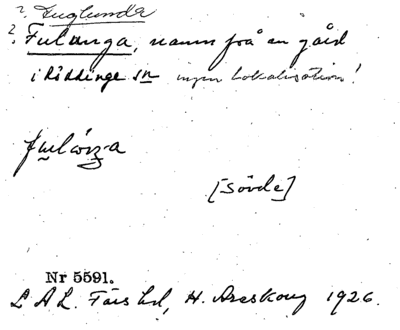 ? Englunda
? Fulunga, namn på en gård
i Röddinge sn ingen lokalisation!
[Sövde]
Nr 5591.
L A L. Färs hd, H. Areskoug 1926.